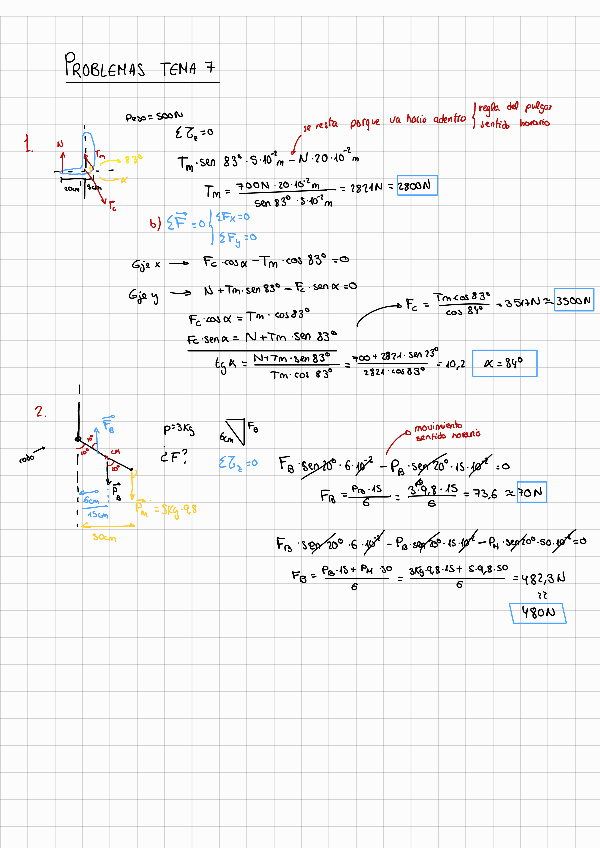 PROBLEMAS TEMA 7
1.
Peso = 500N
ΣZ_z = 0
se resta porque va hacia adentro { regla del pulgar
sentido horario
N
T_m
83º
α
20cm
5cm
F_c
T_m · sen 83º · 5·10⁻² m − N · 20·10⁻² m
T_m = 700N · 20·10⁻² m / sen 83º · 5·10⁻² m = 2821N ≈ 2800N
b) ΣF⃗ = 0 { ΣF_x = 0
ΣF_y = 0
Eje x → F_c · cos α − T_m · cos 83º = 0
Eje y → N + T_m · sen 83º − F_c · sen α = 0
F_c · cos α = T_m · cos 83º
F_c · sen α = N + T_m · sen 83º
F_c = T_m cos 83º / cos 84º = 3517N ≈ 3500N
tg α = N + T_m · sen 83º / T_m · cos 83º = 700 + 2821 · sen 23º / 2821 · cos 83º = 10,2
α = 84º
2.
F⃗_B
codo →
CM
P⃗_B
6cm
15cm
50cm
P⃗_M = 5Kg · 9,8
p = 3Kg
¿F?
6cm
F_B
ΣZ_z = 0
movimiento
sentido horario
F_B · sen 20º · 6 · 10⁻² − P_B · sen 20º · 15 · 10⁻² = 0
F_B = P_B · 15 / 6 = 3 · 9,8 · 15 / 6 = 73,6 ≈ 70N
F_B · sen 20º · 6 · 10⁻² − P_B · sen 20º · 15 · 10⁻² − P_M · sen 20º · 50 · 10⁻² = 0
F_B = P_B · 15 + P_M · 50 / 6 = 3Kg · 9,8 · 15 + 5 · 9,8 · 50 / 6 = 482,3N
≈
480N